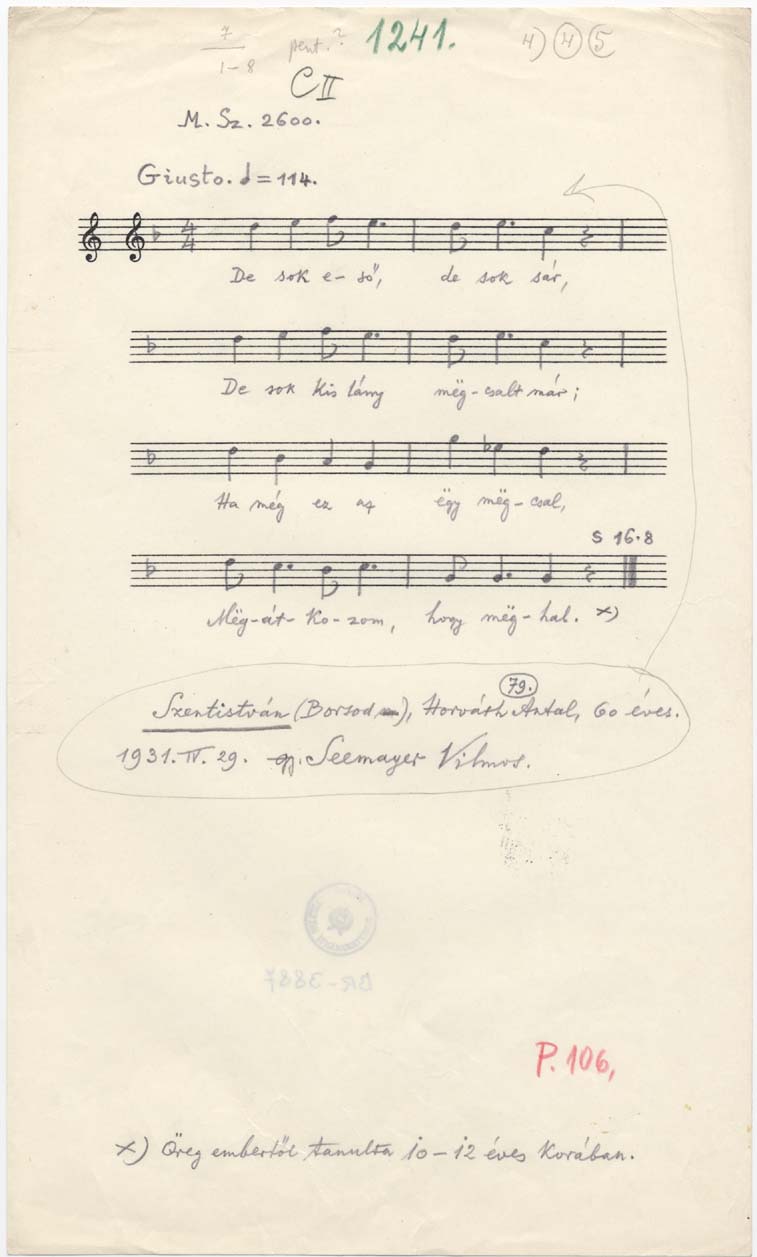 7 pent.? 1241. 4) 4 5
1-8
C II
M. Sz. 2600.
Giusto. ♩ = 114.
4/4
De sok e-ső, de sok sár,
De sok kis lány mëg-csalt már;
Ha még ez az ëgy mëg-csal,
S 16.8
Mëg-át-ko-zom, hogy mëg-hal. x)
79.
Szentistván (Borsod), Horváth Antal, 60 éves.
1931. IV. 29. gy. Seemayer Vilmos.
BR-3887
P. 106,
x) Öreg embertől tanulta 10-12 éves korában.